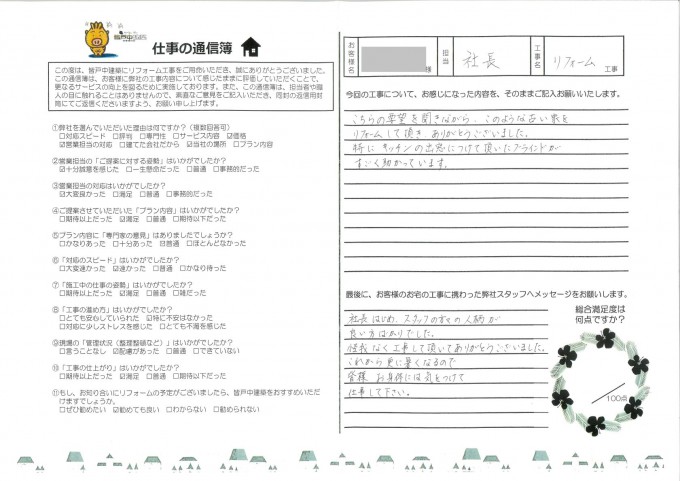 皆戸中建築
仕事の通信簿
この度は、皆戸中建築にリフォーム工事をご用命いただき、誠にありがとうございました。
この通信簿は、お客様に弊社の工事内容について感じたままに評価していただくことで、
更なるサービスの向上を図るために実施しております。また、この通信簿は、担当者や職
人の目に触れることはありませんので、率直なご意見をご記入いただき、同封の返信用封
筒にてご返信くださいますよう、お願い申し上げます。
①弊社を選んでいただいた理由は何ですか?(複数回答可)
□対応スピード □評判 □専門性 □サービス内容 ☑価格
☑営業担当の対応 □建てた会社だから ☑当社の場所 □プラン内容
②営業担当の「ご提案に対する姿勢」はいかがでしたか?
☑十分誠意を感じた □一生懸命だった □普通 □事務的だった
③営業担当の対応はいかがでしたか?
☑大変良かった □満足 □普通 □事務的だった
④ご提案させていただいた「プラン内容」はいかがでしたか?
□期待以上だった ☑満足 □普通 □期待以下だった
⑤プラン内容に「専門家の意見」はありましたでしょうか?
□かなりあった □十分あった ☑普通 □ほとんどなかった
⑥「対応のスピード」はいかがでしたか?
□大変速かった ☑速かった □普通 □かなり待った
⑦「施工中の仕事の姿勢」はいかがでしたか?
□期待以上だった ☑満足だった □普通 □雑だった
⑧「工事の進め方」はいかがでしたか?
□とても安心していられた ☑特に不安はなかった
□対応に少しストレスを感じた □とても不満を感じた
⑨現場の「管理状況(整理整頓など)」はいかがでしたか?
□言うことなし ☑配慮があった □普通 □できていない
⑩「工事の仕上がり」はいかがでしたか?
□期待以上だった ☑満足 □普通 □期待以下だった
⑪もし、お知り合いにリフォームの予定がございましたら、皆戸中建築をおすすめいただ
けますでしょうか。
□ぜひ勧めたい ☑勧めても良い □わからない □勧められない
お客様名
様
担当
社長
工事名
リフォーム
工事
今回の工事について、お感じになった内容を、そのままご記入お願いいたします。
こちらの要望を聞きながら、このような古い家を
リフォームして頂き ありがとうございました。
特に キッチンの出窓につけて頂いたブラインドが
すごく助かっています。
最後に、お客様のお宅の工事に携わった弊社スタッフへメッセージをお願いします。
社長はじめ、スタッフのすべての人柄が
良い方ばかりでした。
怪我なく工事して頂いてありがとうございました。
これから更に暑くなるので
皆様 お身体には気をつけて
仕事して下さい。
総合満足度は
何点ですか?
100点